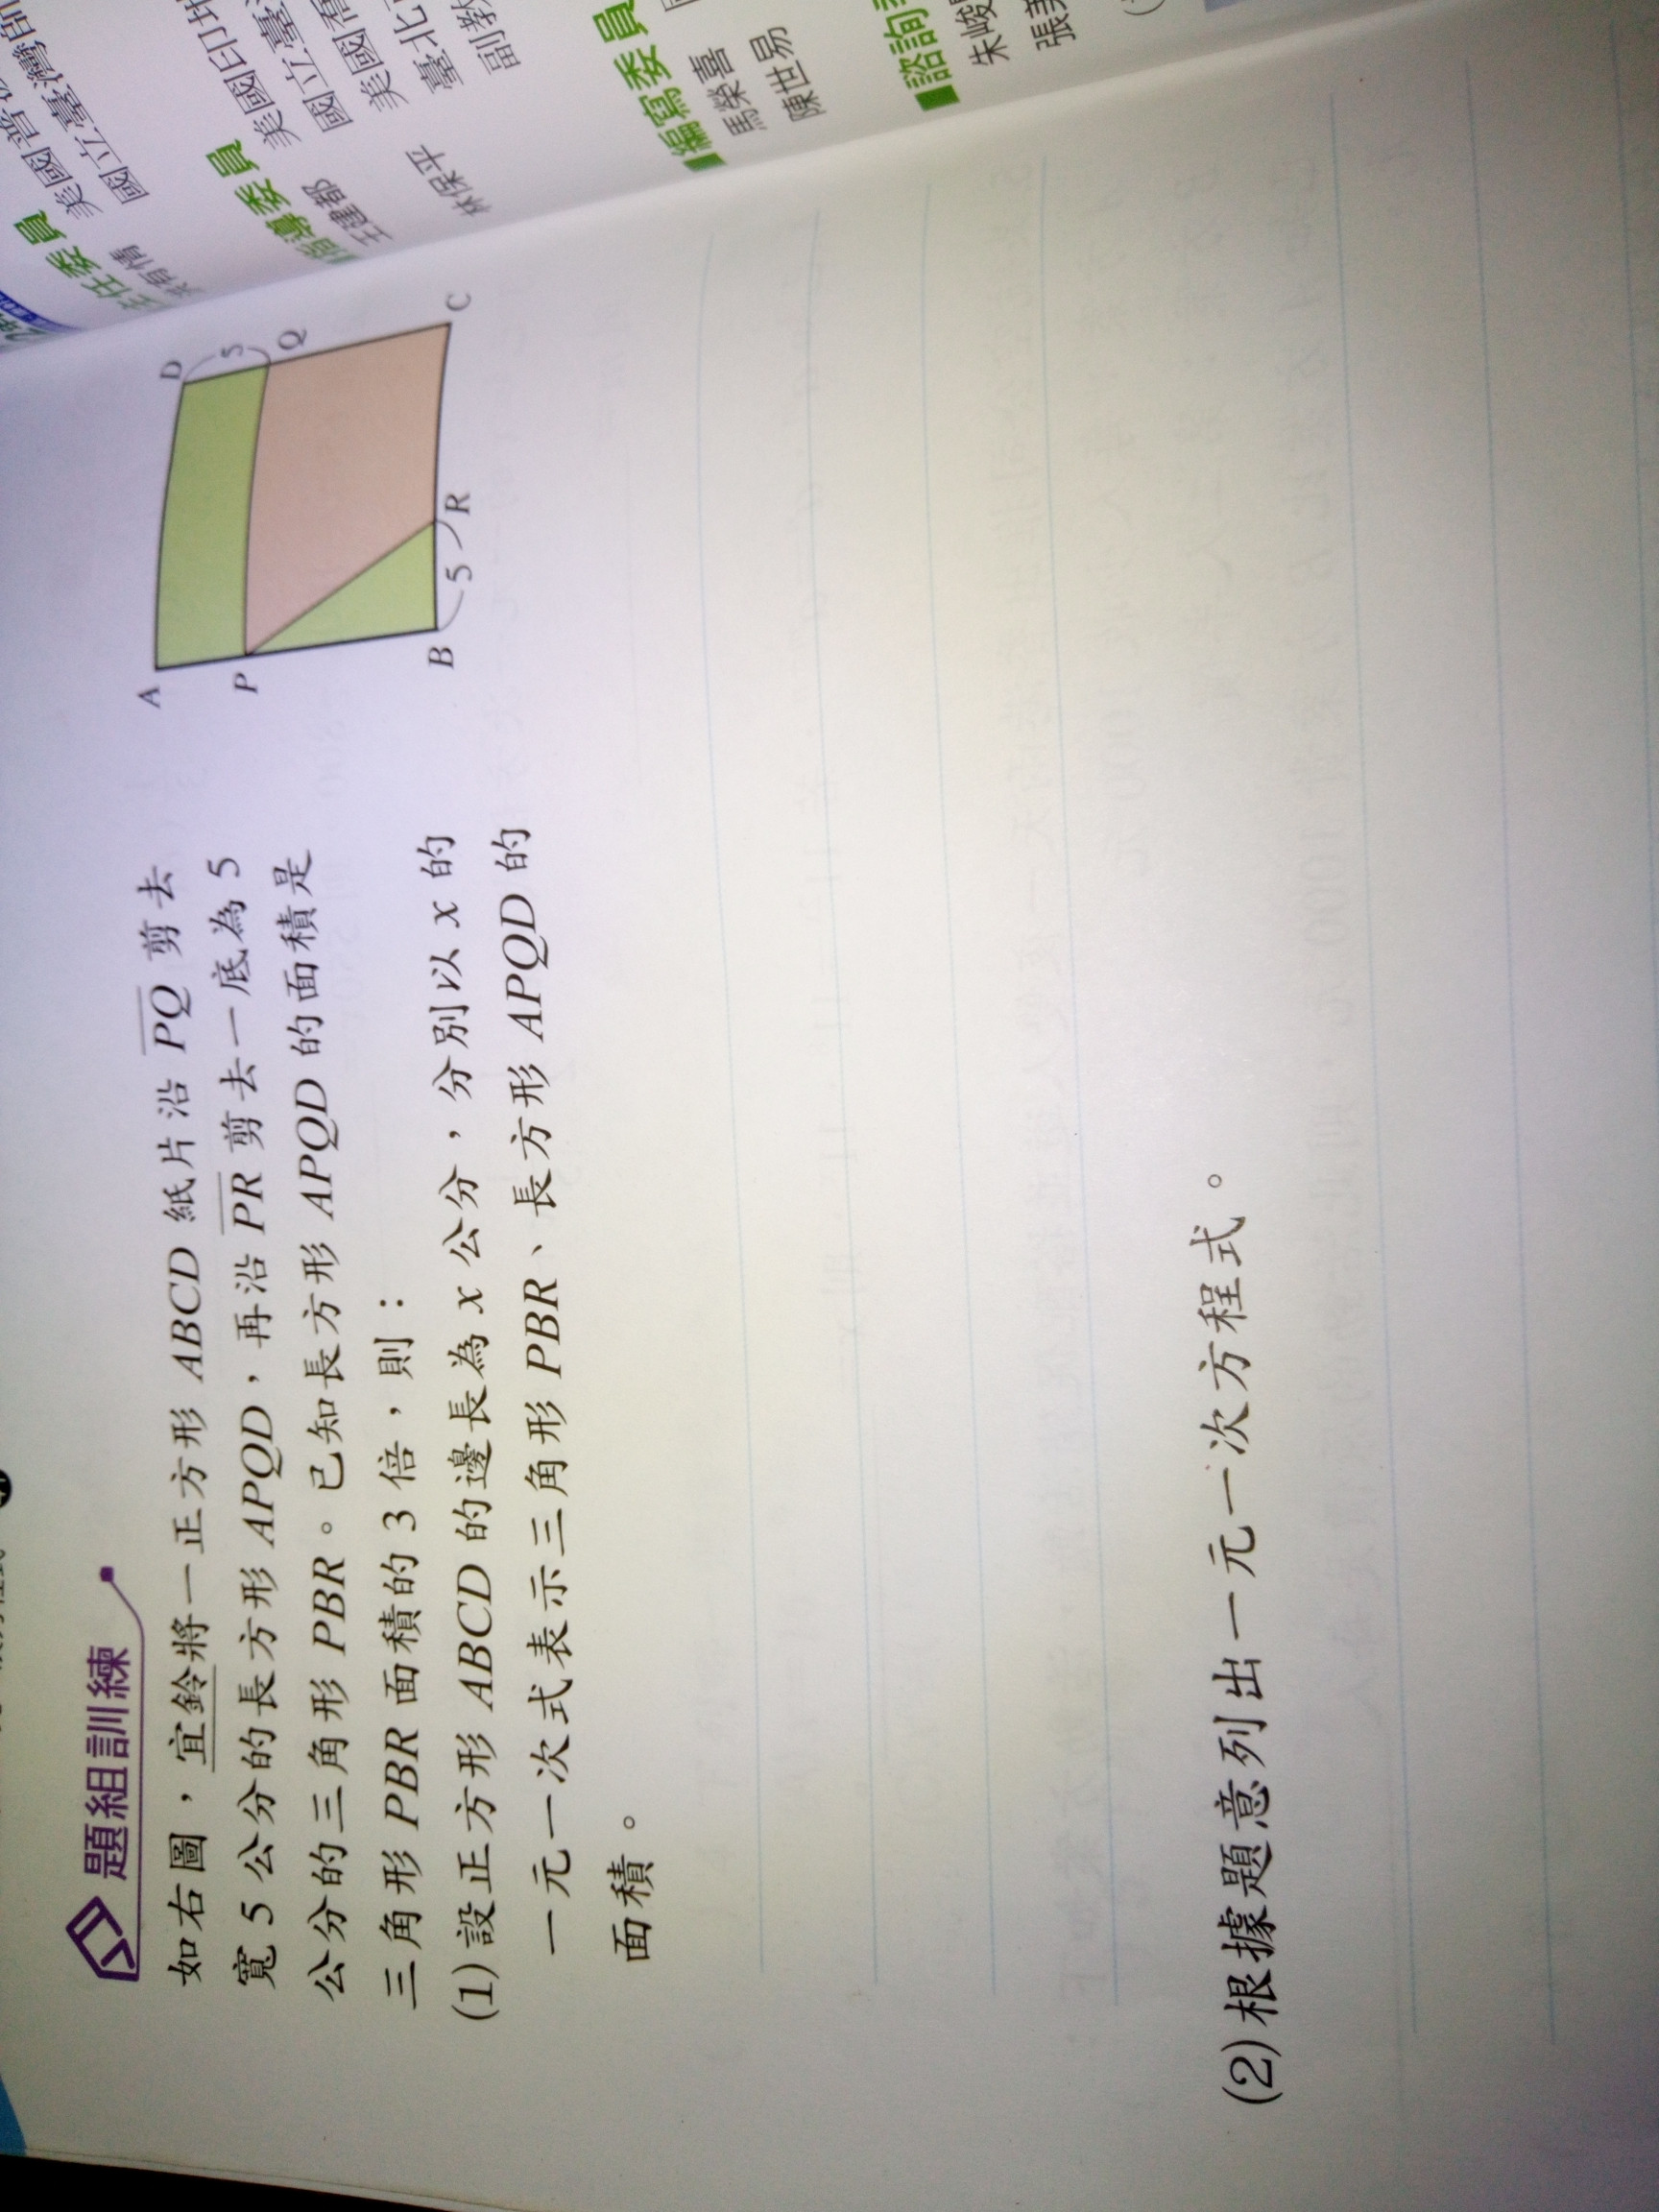 題組訓練
如右圖，宜鈴將一正方形 ABCD 紙片沿 PQ 剪去
寬 5 公分的長方形 APQD，再沿 PR 剪去一底為 5
公分的三角形 PBR。已知長方形 APQD 的面積是
三角形 PBR 面積的 3 倍，則：
(1)設正方形 ABCD 的邊長為 x 公分，分別以 x 的
一元一次式表示三角形 PBR、長方形 APQD 的
面積。
A
D
5
P
Q
B
5
R
C
(2)根據題意列出一元一次方程式。
主任委員
洪有情
美國
國立臺灣師
指導委員
王建都
美國印
國立臺
林保平
美國
臺北
副教
■編寫委員
馬榮喜
陳世易
■諮詢
朱峻
張美